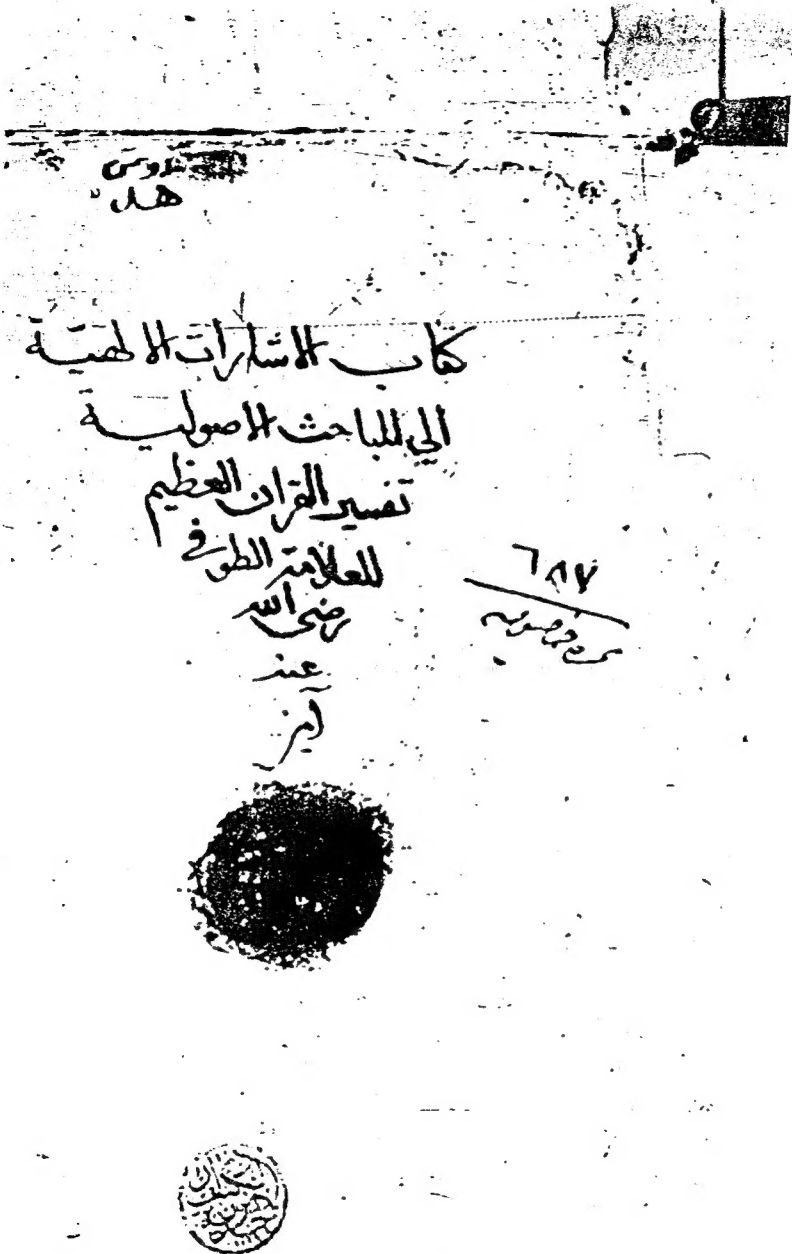 كتاب الاشارات الالهية
الي المباحث الاصولية
تفسير القران العظيم
للعلامة الطوفي
رضى الله
عنه
آمين
٦٨٧